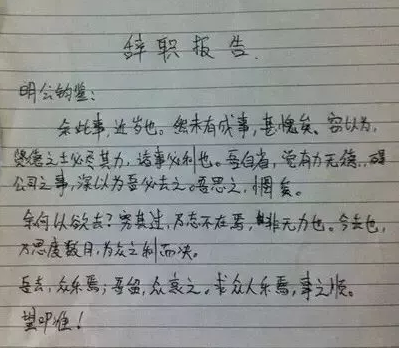 辞职报告
明公钧鉴:
余此事,近岁也。然未有成事,甚愧矣。窃以为,
贤德之士必尽其力,诸事必利也。吾自省,觉有力无德,碍
公司之事,深以为吾必去之。吾思之,惘矣。
余何以欲去?究其过,乃志不在焉,非无力也。今去也,
乃思度数月,为众之利而决。
吾去,众乐焉;吾留,众哀之。求众人乐焉,事之顺。
望叩准!